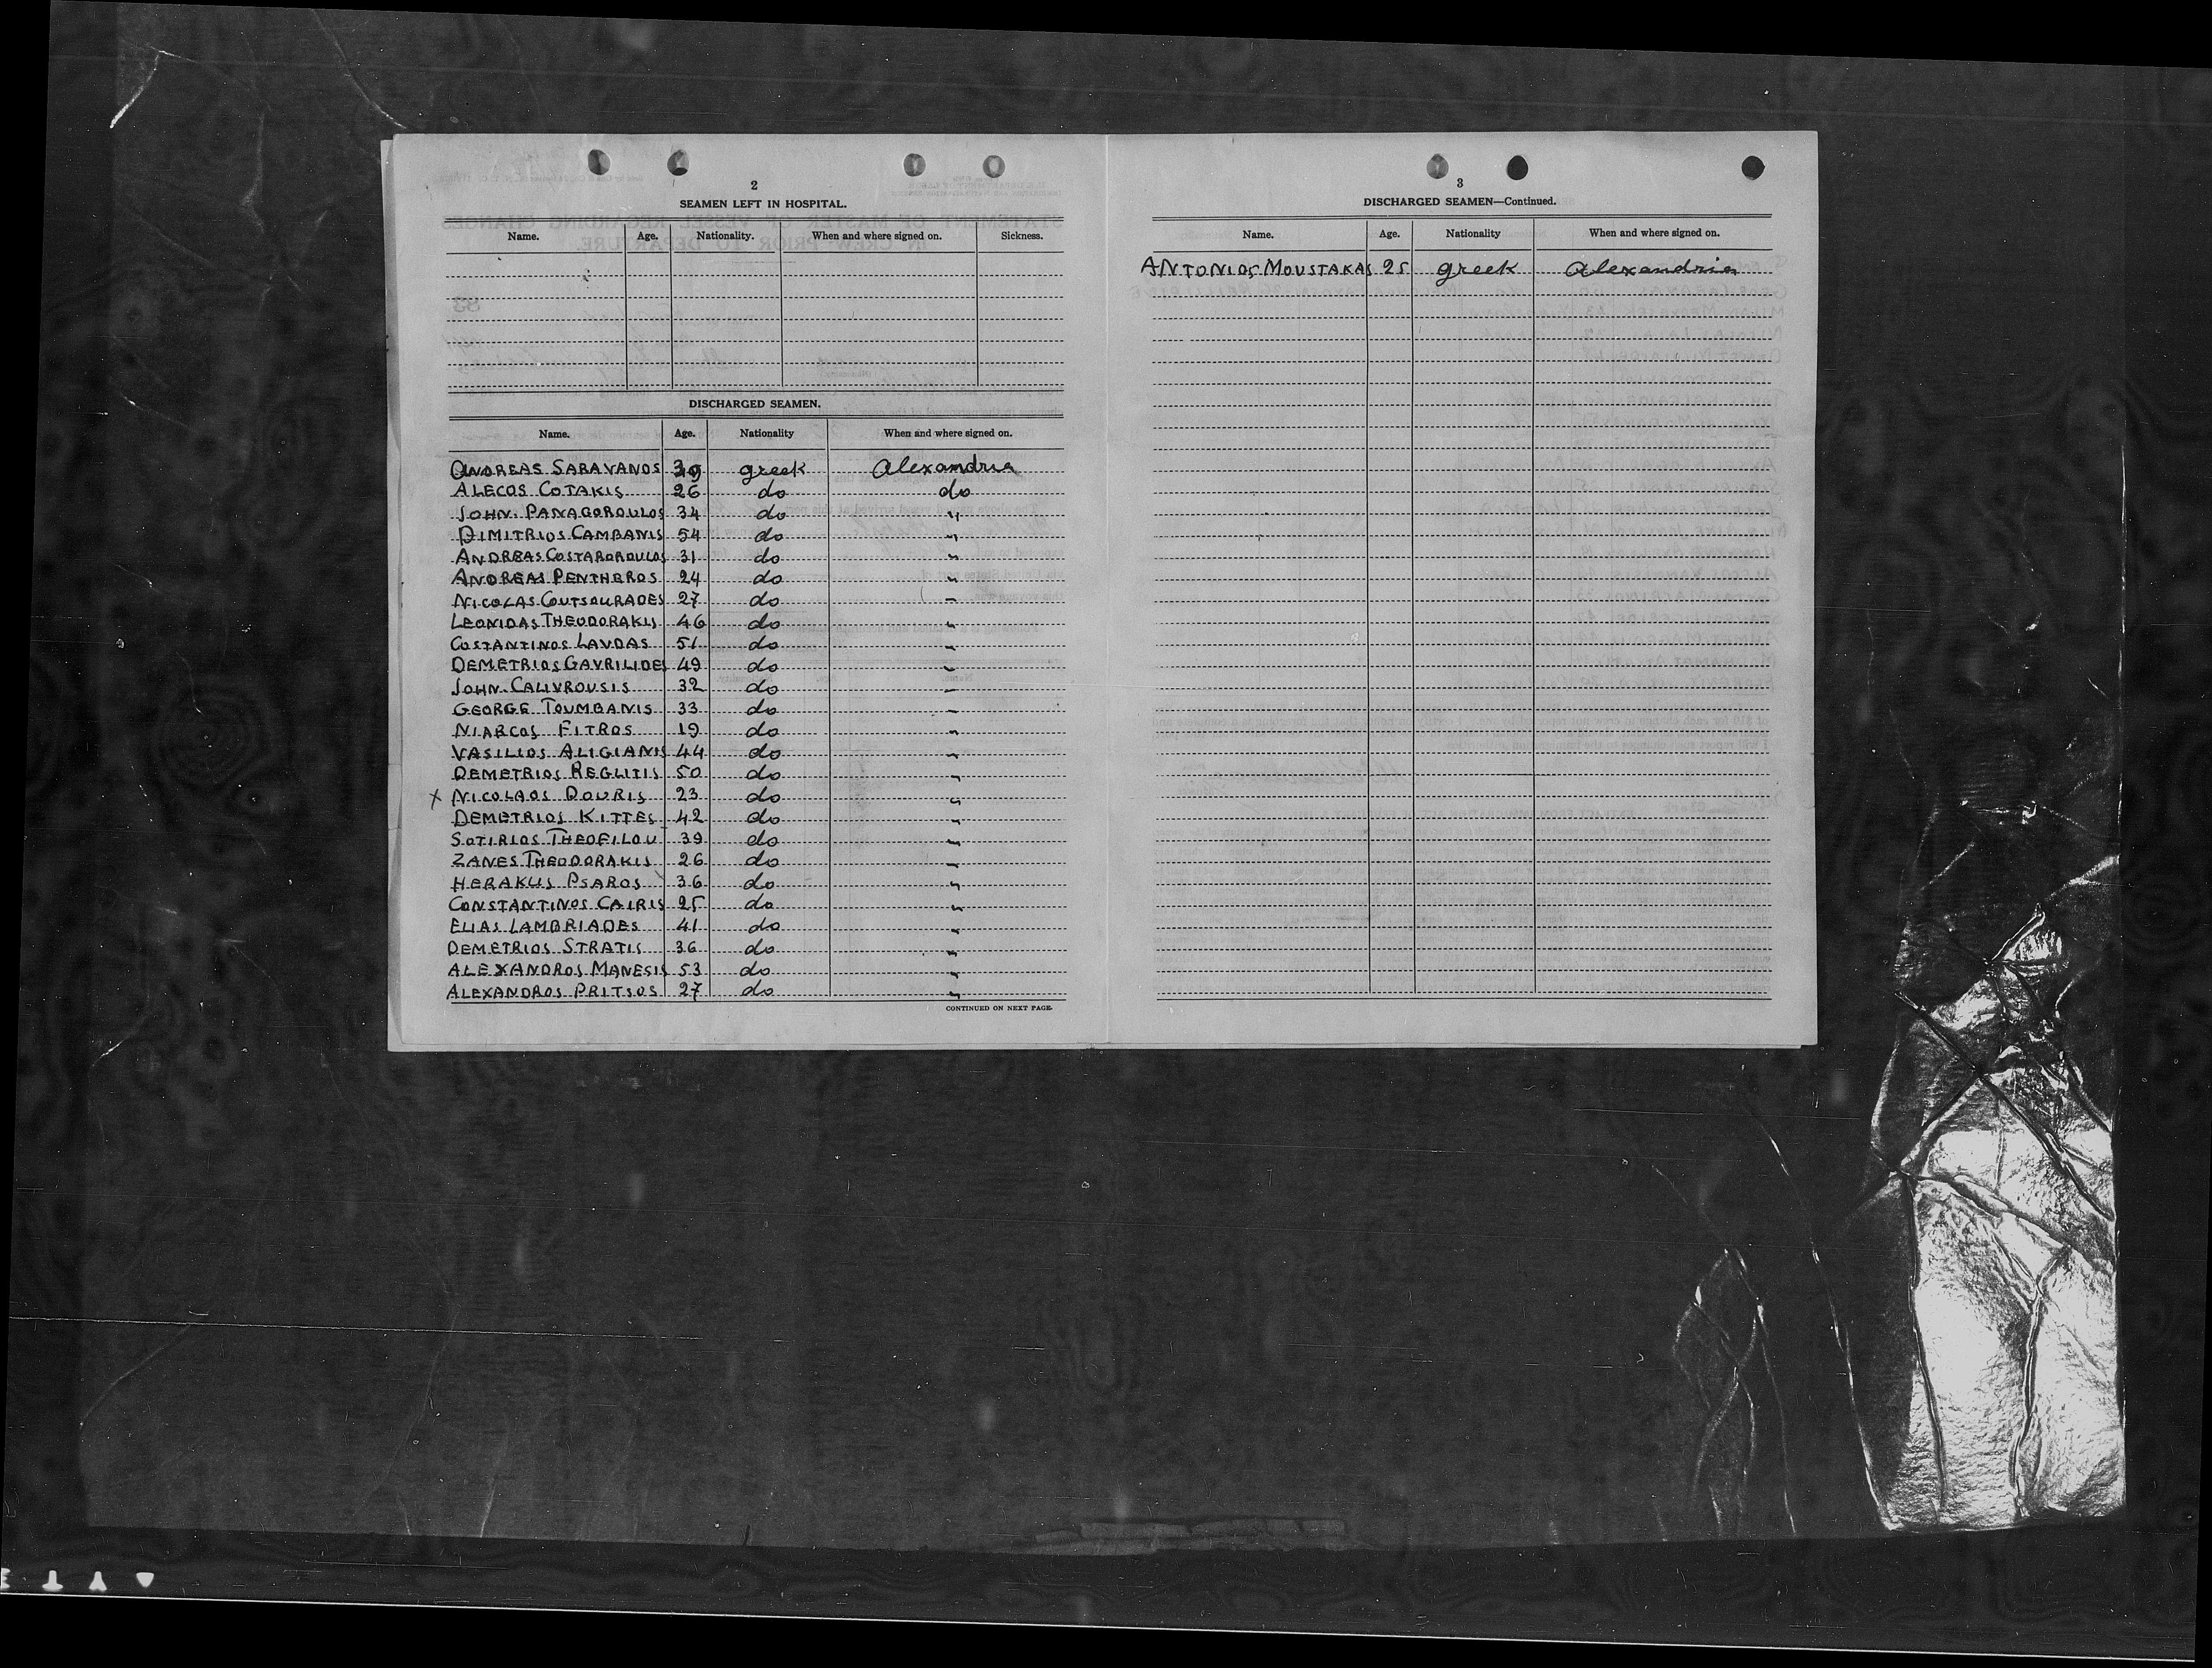 2
SEAMEN LEFT IN HOSPITAL.
Name. Age. Nationality. When and where signed on. Sickness.
DISCHARGED SEAMEN.
Name. Age. Nationality When and where signed on.
ANDREAS SARAVANOS 39 greek Alexandria
ALECOS COTAKIS 26 do do
JOHN PANAGOPOULOS 34 do "
DIMITRIOS CAMBANIS 54 do "
ANDREAS COSTAROPOULOS 31 do "
ANDREAS PENTHEROS 24 do "
NICOLAS COUTSOURADES 27 do "
LEONIDAS THEODORAKIS 46 do "
COSTANTINOS LAVDAS 51 do "
DEMETRIOS GAVRILIDES 49 do "
JOHN CALIVROUSIS 32 do "
GEORGE TOUMBANIS 33 do "
NIARCOS FITROS 19 do "
VASILIOS ALIGIANIS 44 do "
DEMETRIOS REGLITIS 50 do "
x NICOLAOS DOURIS 23 do "
DEMETRIOS KITTES 42 do "
SOTIRIOS THEOFILOU 39 do "
ZANES THEODORAKIS 26 do "
HERAKLIS PSAROS 36 do "
CONSTANTINOS CAIRIS 25 do "
ELIAS LAMBRIADES 41 do "
DEMETRIOS STRATIS 36 do "
ALEXANDROS MANESIS 53 do "
ALEXANDROS PRITSOS 27 do "
CONTINUED ON NEXT PAGE.
3
DISCHARGED SEAMEN—Continued.
Name. Age. Nationality When and where signed on.
ANTONIOS MOUSTAKAS 25 greek Alexandria